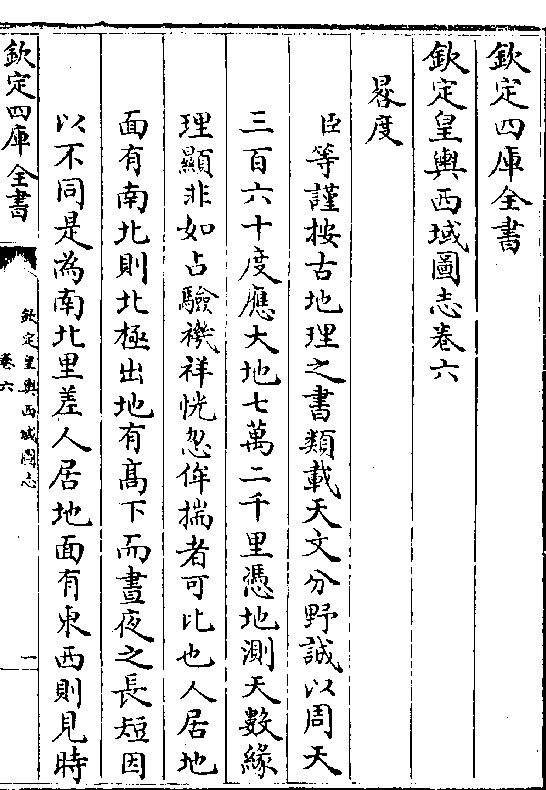 欽定四庫全書
欽定皇輿西域圖志卷六
晷度
臣等謹按古地理之書類載天文分野誠以周天
三百六十度應大地七萬二千里憑地測天數緣
理顯非如占驗禨祥恍忽侔揣者可比也人居地
面有南北則北極出地有髙下而晝夜之長短因
以不同是為南北里差人居地面有東西則見時
欽定四庫全書
欽定皇輿西域圖志
卷六
一